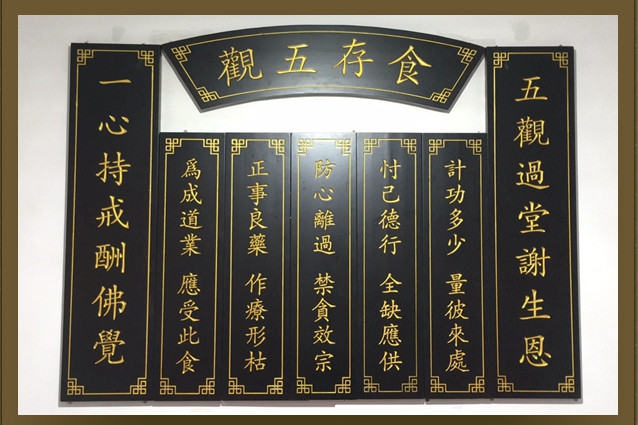 食存五觀
五觀過堂謝生恩
計功多少 量彼來處
忖己德行 全缺應供
防心離過 禁貪效宗
正事良藥 作療形枯
為成道業 應受此食
一心持戒酬佛覺